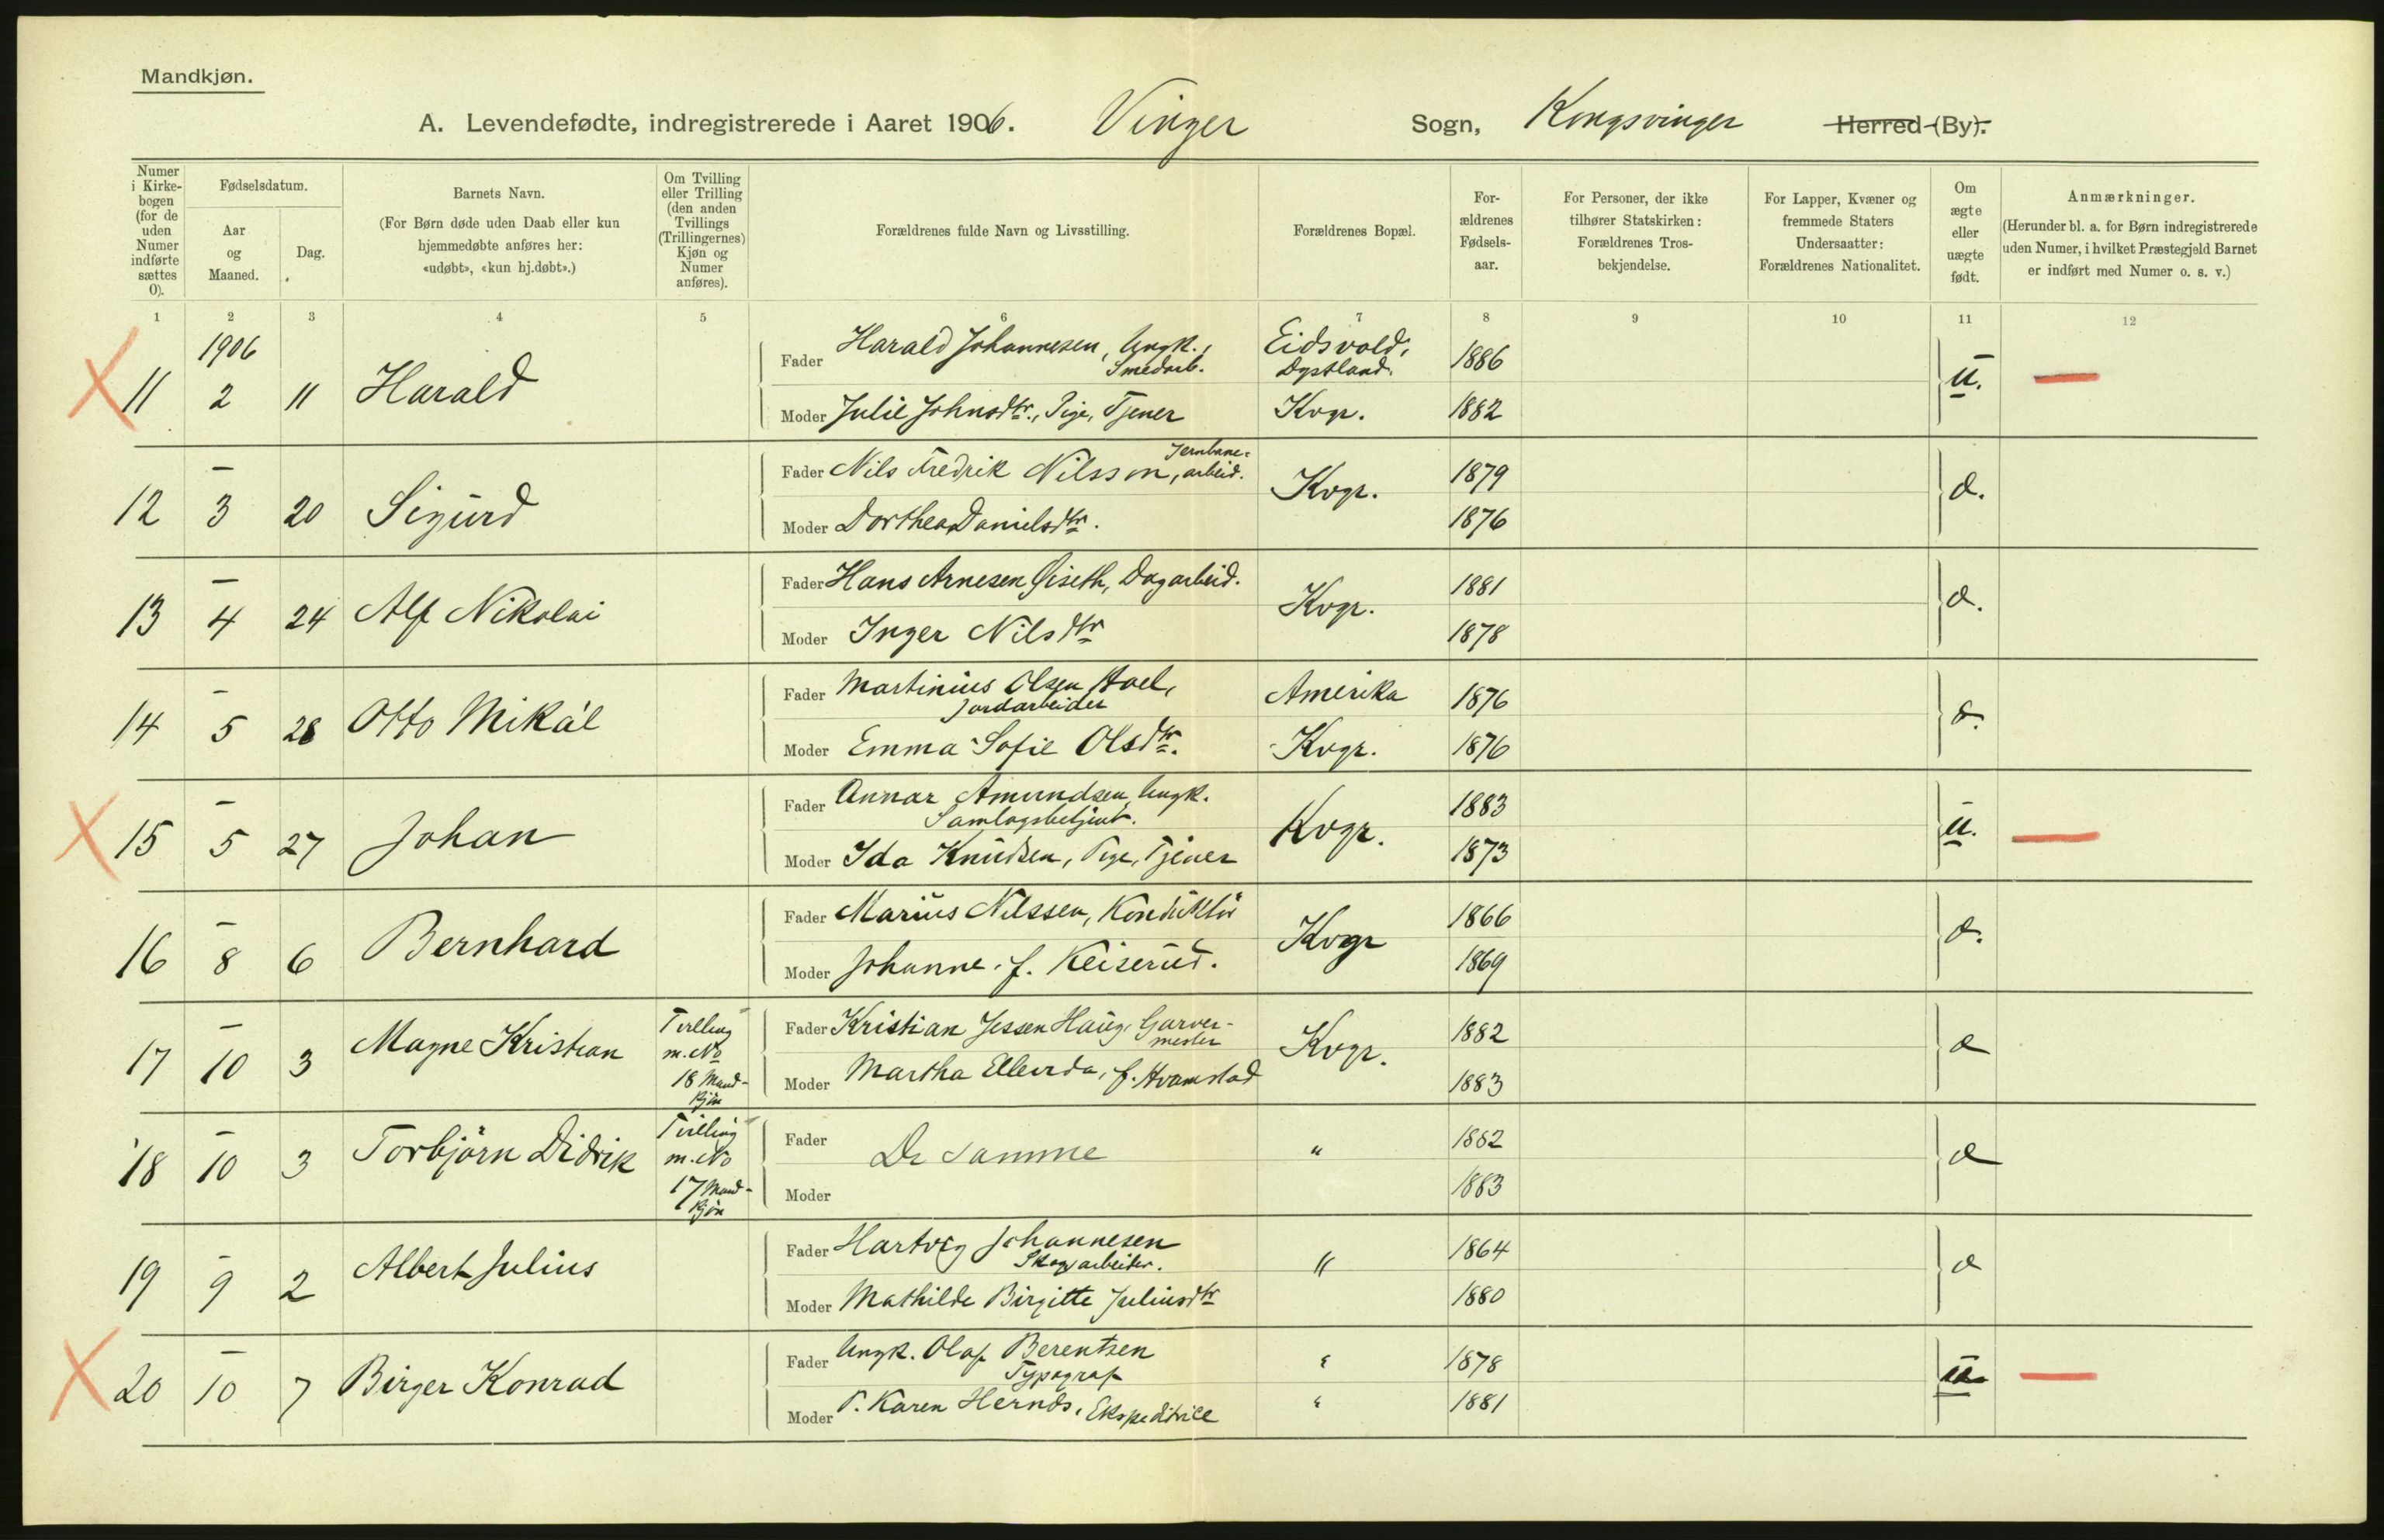 Mandkjøn.
A. Levendefødte, indregistrerede i Aaret 1906. Vinger Sogn, Kongsvinger Herred (By).
Numer i Kirkebogen (for de uden Numer indførte sættes 0).
Fødselsdatum.
Aar og Maaned.
Dag.
Barnets Navn.
(For Børn døde uden Daab eller kun hjemmedøbte anføres her: «udøbt», «kun hj.døbt».)
Om Tvilling eller Trilling (den anden Tvillings (Trillingernes) Kjøn og Numer anføres).
Forældrenes fulde Navn og Livsstilling.
Forældrenes Bopæl.
Forældrenes Fødselsaar.
For Personer, der ikke tilhører Statskirken: Forældrenes Trosbekjendelse.
For Lapper, Kvæner og fremmede Staters Undersaatter: Forældrenes Nationalitet.
Om ægte eller uægte født.
Anmærkninger.
(Herunder bl. a. for Børn indregistrerede uden Numer, i hvilket Præstegjeld Barnet er indført med Numer o. s. v.)
1 2 3 4 5 6 7 8 9 10 11 12
1906
11 2 11 Harald
Fader Harald Johannesen, Ungk., Smedarb. Eidsvold, 1886 u.
Moder Julie Johnsdtr., Pige, Tjener Kvgr. 1882
12 – 3 20 Sigurd
Fader Nils Fredrik Nilsson, Jernbane-arbeid. Kvgr. 1879 æ.
Moder Dorthea Danielsdtr. 1876
13 – 4 24 Alf Nikolai
Fader Hans Arnesen Øiseth, Dagarbeid. Kvgr. 1881 æ.
Moder Inger Nilsdtr 1878
14 – 5 28 Otto Mikál
Fader Martinius Olsen Hoel, Jordarbeider Amerika 1876 æ.
Moder Emma Sofie Olsdtr. Kvgr. 1876
15 – 5 27 Johan
Fader Annar Amundsen, Ungk. Samlagsbetjent. Kvgr. 1883 u.
Moder Ida Knudsen, Pige, Tjener 1873
16 – 8 6 Bernhard
Fader Marius Nilssen, Konduktör Kvgr 1866 æ.
Moder Johanne f. Keiserud. 1869
17 – 10 3 Magne Kristian Tvilling m. No 18 Mand-kjön
Fader Kristian Jessen Haug, Garver-mester Kvgr. 1882 æ
Moder Martha Ellevida, f. Hvamstad 1883
18 – 10 3 Torbjörn Didrik Tvilling m. No 17 Mand-kjön
Fader De samme " 1882 æ
Moder 1883
19 – 9 2 Albert Julius
Fader Hartvig Johannesen Skogsarbeider. " 1864 æ
Moder Mathilde Birgitte Juliusdtr 1880
20 – 10 7 Birger Konrad
Fader Ungk. Olaf Berentsen Typograf " 1878 u
Moder P. Karen Hernds, Ekspeditrice " 1881